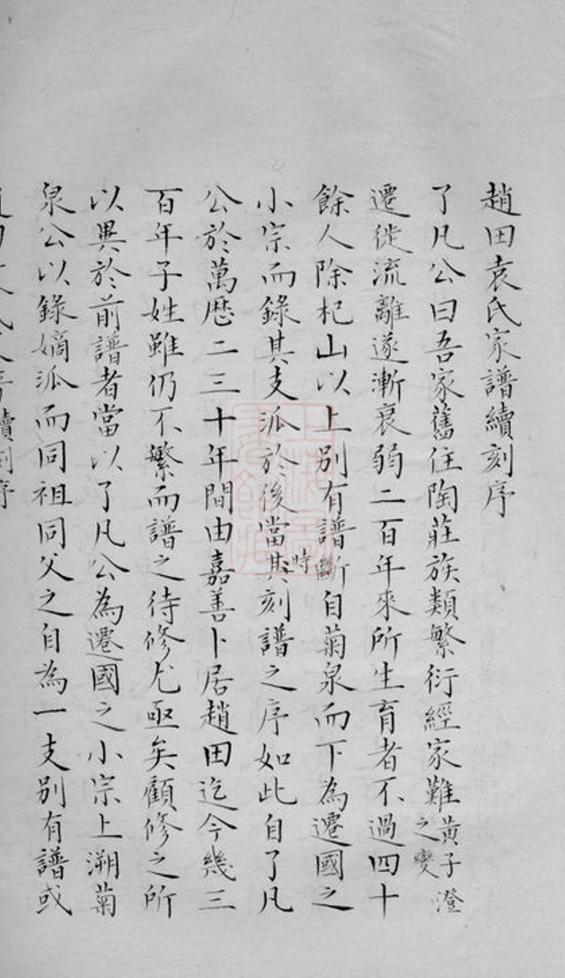 趙田袁氏家譜續刻序
了凡公曰吾家舊住陶莊族類繁衍經家難黃子澄之變
遷徙流離遂漸衰弱二百年來所生育者不過四十
餘人除杞山以上別有譜斷自菊泉而下為遷國之
小宗而錄其支派於後當其時刻譜之序如此自了凡
公於萬歷二三十年間由嘉善卜居趙田迄今幾三
百年子姓雖仍不繁而譜之待修尤亟矣顧修之所
以異於前譜者當以了凡公為遷國之小宗上溯菊
泉公以錄嫡派而同祖同父之自為一支別有譜或